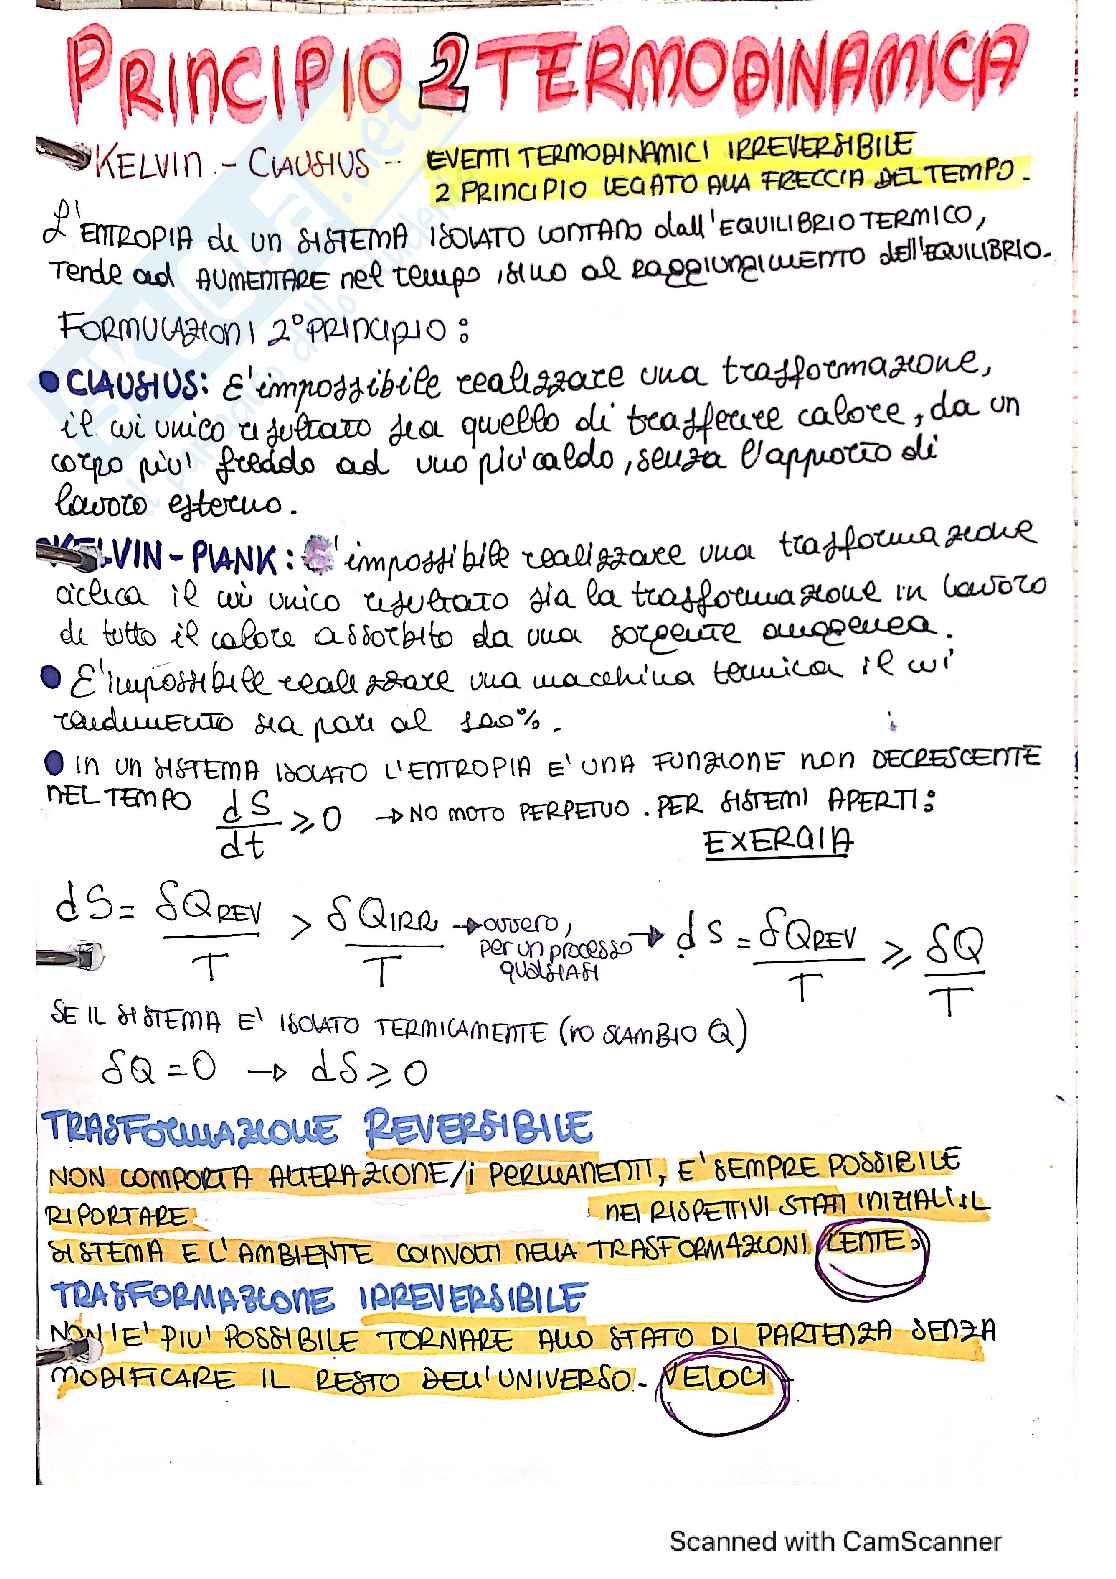 PRINCIPIO 2 TERMODINAMICA
KELVIN - CLAUSIUS - EVENTI TERMODINAMICI IRREVERSIBILE
2 PRINCIPIO LEGATO ALLA FRECCIA DEL TEMPO.
L'ENTROPIA di UN SISTEMA ISOLATO LONTANO dall'EQUILIBRIO TERMICO,
Tende ad AUMENTARE nel tempo, sino al RAGGIUNGIMENTO dell'EQUILIBRIO.
FORMULAZIONI 2° PRINCIPIO:
● CLAUSIUS: E' impossibile realizzare una trasformazione,
il cui unico risultato sia quello di trasferire calore, da un
corpo piu' freddo ad uno piu' caldo, senza l'apporto di
lavoro esterno.
KELVIN - PLANK: E' impossibile realizzare una trasformazione
ciclica il cui unico risultato sia la trasformazione in lavoro
di tutto il calore assorbito da una sorgente omogenea.
● E' impossibile realizzare una macchina termica il cui
rendimento sia pari al 100%.
● IN UN SISTEMA ISOLATO L'ENTROPIA E' UNA FUNZIONE NON DECRESCENTE
NEL TEMPO dS/dt ⩾ 0 → NO MOTO PERPETUO. PER SISTEMI APERTI:
EXERGIA
dS = δQREV/T > δQIRR/T → ovvero, per un processo qualsiasi → dS = δQREV/T ⩾ δQ/T
SE IL SISTEMA E' ISOLATO TERMICAMENTE (NO SCAMBIO Q)
δQ = 0 → dS ⩾ 0
TRASFORMAZIONE REVERSIBILE
NON COMPORTA ALTERAZIONE/i PERMANENTI, E' SEMPRE POSSIBILE
RIPORTARE NEI RISPETTIVI STATI INIZIALI IL
SISTEMA E L'AMBIENTE COINVOLTI NELLA TRASFORMAZIONI LENTE.
TRASFORMAZIONE IRREVERSIBILE
NON E' PIU' POSSIBILE TORNARE ALLO STATO DI PARTENZA SENZA
MODIFICARE IL RESTO DELL'UNIVERSO - VELOCI
Scanned with CamScanner